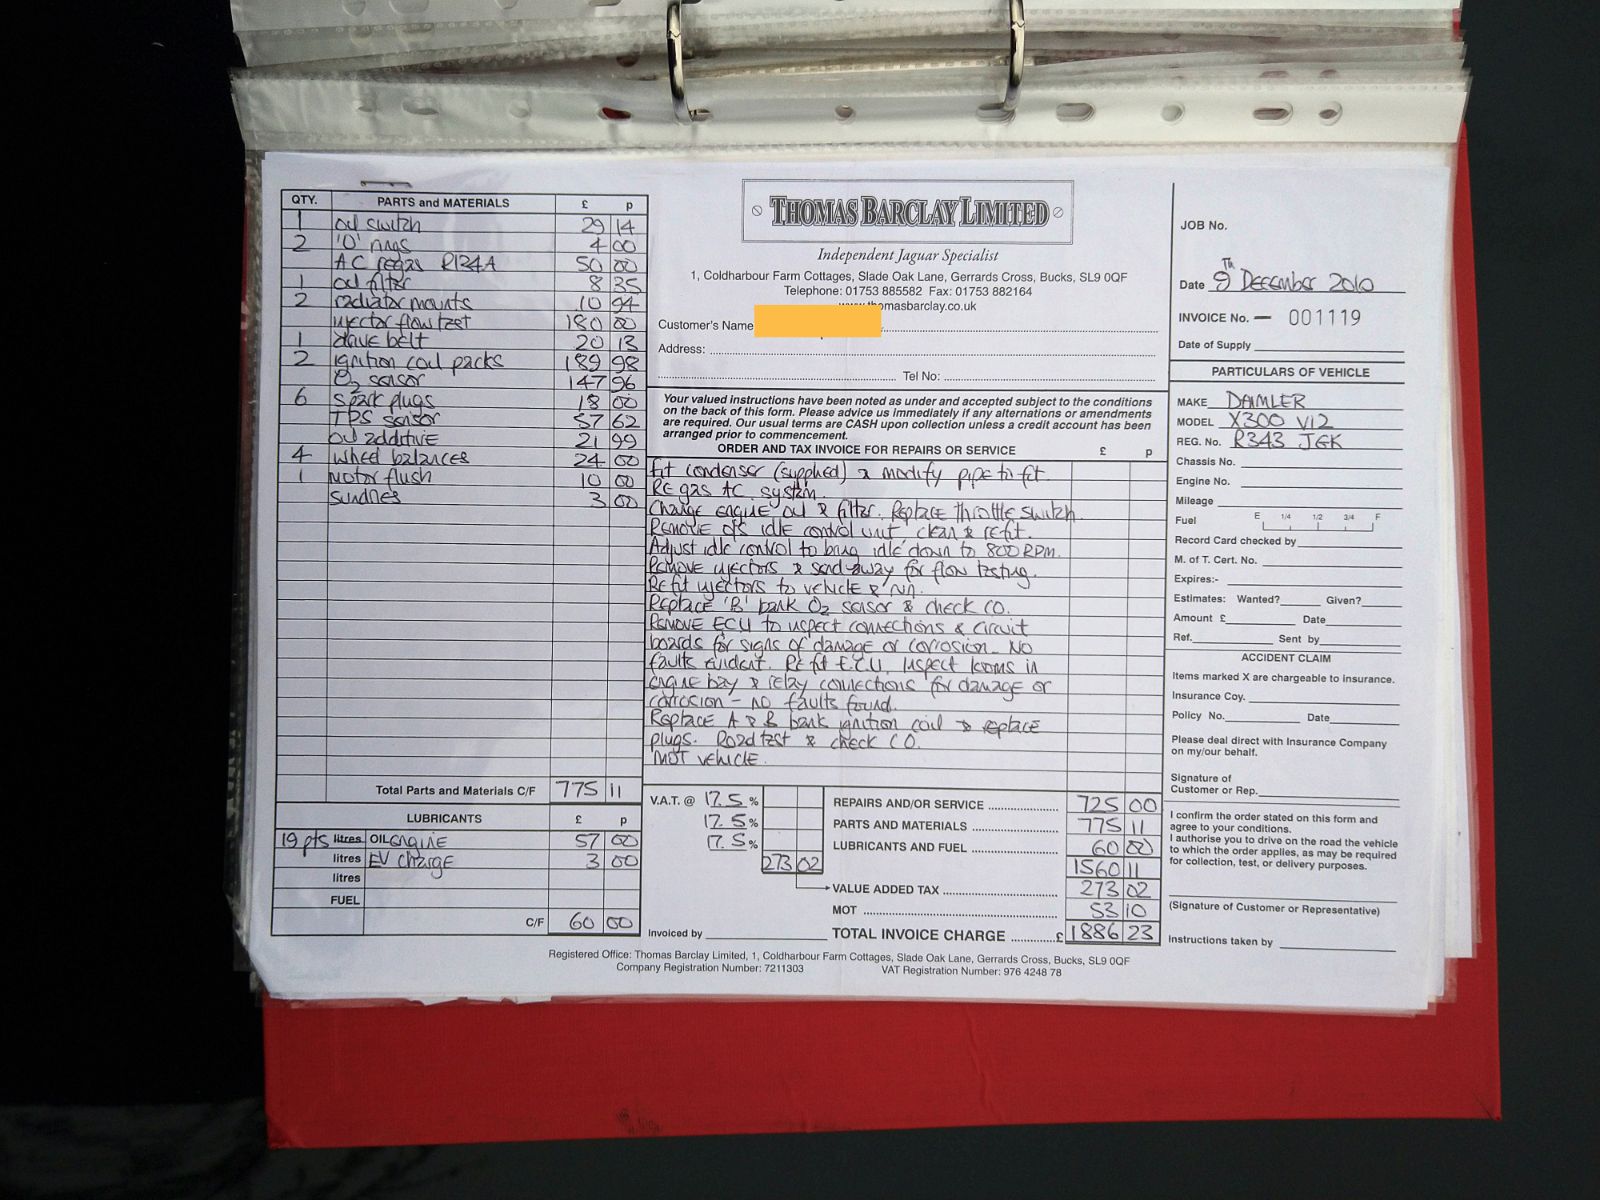 QTY. PARTS and MATERIALS £ p
1 oil switch 29 14
2 'O' rings 4 00
AC regas R134A 50 00
1 oil filter 8 35
2 radiator mounts 10 94
injector flow test 180 00
1 drive belt 20 13
2 ignition coil packs 189 98
O2 sensor 147 96
6 Spark plugs 18 00
TPS sensor 57 62
oil additive 21 99
4 Wheel balances 24 00
1 Motor flush 10 00
sundries 3 00
Total Parts and Materials C/F 775 11
LUBRICANTS £ p
19 pts litres OIL engine 57 00
litres EV charge 3 00
litres
FUEL
C/F 60 00
THOMAS BARCLAY LIMITED
Independent Jaguar Specialist
1, Coldharbour Farm Cottages, Slade Oak Lane, Gerrards Cross, Bucks, SL9 0QF
Telephone: 01753 885582 Fax: 01753 882164
www.thomasbarclay.co.uk
Customer's Name
Address:
Tel No:
Your valued instructions have been noted as under and accepted subject to the conditions
on the back of this form. Please advise us immediately if any alternations or amendments
are required. Our usual terms are CASH upon collection unless a credit account has been
arranged prior to commencement.
ORDER AND TAX INVOICE FOR REPAIRS OR SERVICE £ p
Fit condenser (supplied) & modify pipe to fit.
Regas AC system.
Change engine oil & filter. Replace throttle switch.
Remove o/s idle control unit, clean & refit.
Adjust idle control to bring idle down to 800 RPM.
Remove injectors & send away for flow testing.
Refit injectors to vehicle & run.
Replace 'B' bank O2 sensor & check CO.
Remove ECU to inspect connections & circuit
boards for signs of damage or corrosion - No
faults evident. Refit E.C.U, inspect looms in
engine bay & relay connections for damage or
corrosion - no faults found.
Replace A & B bank ignition coil & replace
plugs. Road test & check CO.
MOT vehicle.
V.A.T. @ 17.5 %
17.5 %
17.5 %
273 02
REPAIRS AND/OR SERVICE 725 00
PARTS AND MATERIALS 775 11
LUBRICANTS AND FUEL 60 00
1560 11
VALUE ADDED TAX 273 02
MOT 53 10
Invoiced by
TOTAL INVOICE CHARGE £ 1886 23
JOB No.
Date 9TH December 2010
INVOICE No. — 001119
Date of Supply
PARTICULARS OF VEHICLE
MAKE DAIMLER
MODEL X300 V12
REG. No. R343 JGK
Chassis No.
Engine No.
Mileage
Fuel E 1/4 1/2 3/4 F
Record Card checked by
M. of T. Cert. No.
Expires:-
Estimates: Wanted? Given?
Amount £ Date
Ref. Sent by
ACCIDENT CLAIM
Items marked X are chargeable to insurance.
Insurance Coy.
Policy No. Date
Please deal direct with Insurance Company
on my/our behalf.
Signature of
Customer or Rep.
I confirm the order stated on this form and
agree to your conditions.
I authorise you to drive on the road the vehicle
to which the order applies, as may be required
for collection, test, or delivery purposes.
(Signature of Customer or Representative)
Instructions taken by
Registered Office: Thomas Barclay Limited, 1, Coldharbour Farm Cottages, Slade Oak Lane, Gerrards Cross, Bucks, SL9 0QF
Company Registration Number: 7211303 VAT Registration Number: 976 4248 78